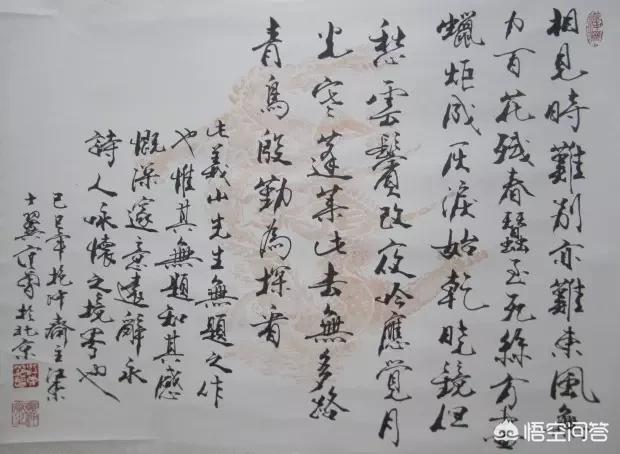 相見時難別亦難東風無
力百花殘春蠶至死絲方盡
蠟炬成灰淚始乾曉鏡但
愁雲鬢改夜吟應覺月
光寒蓬萊此去無多路
青鳥殷勤為探看
此義山先生無題之作
也惟其無題知其感
慨深邃意遠辭永
詩人咏懷之境
齋主江東
於北京
悟空问答